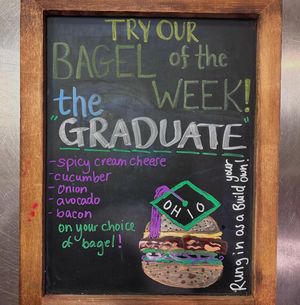 TRY OUR
BAGEL of the
WEEK!
the
"GRADUATE"
- spicy cream cheese
- cucumber
- onion
- avocado
- bacon
on your choice
of bagel!
OHIO
Rung in as a Build your own!